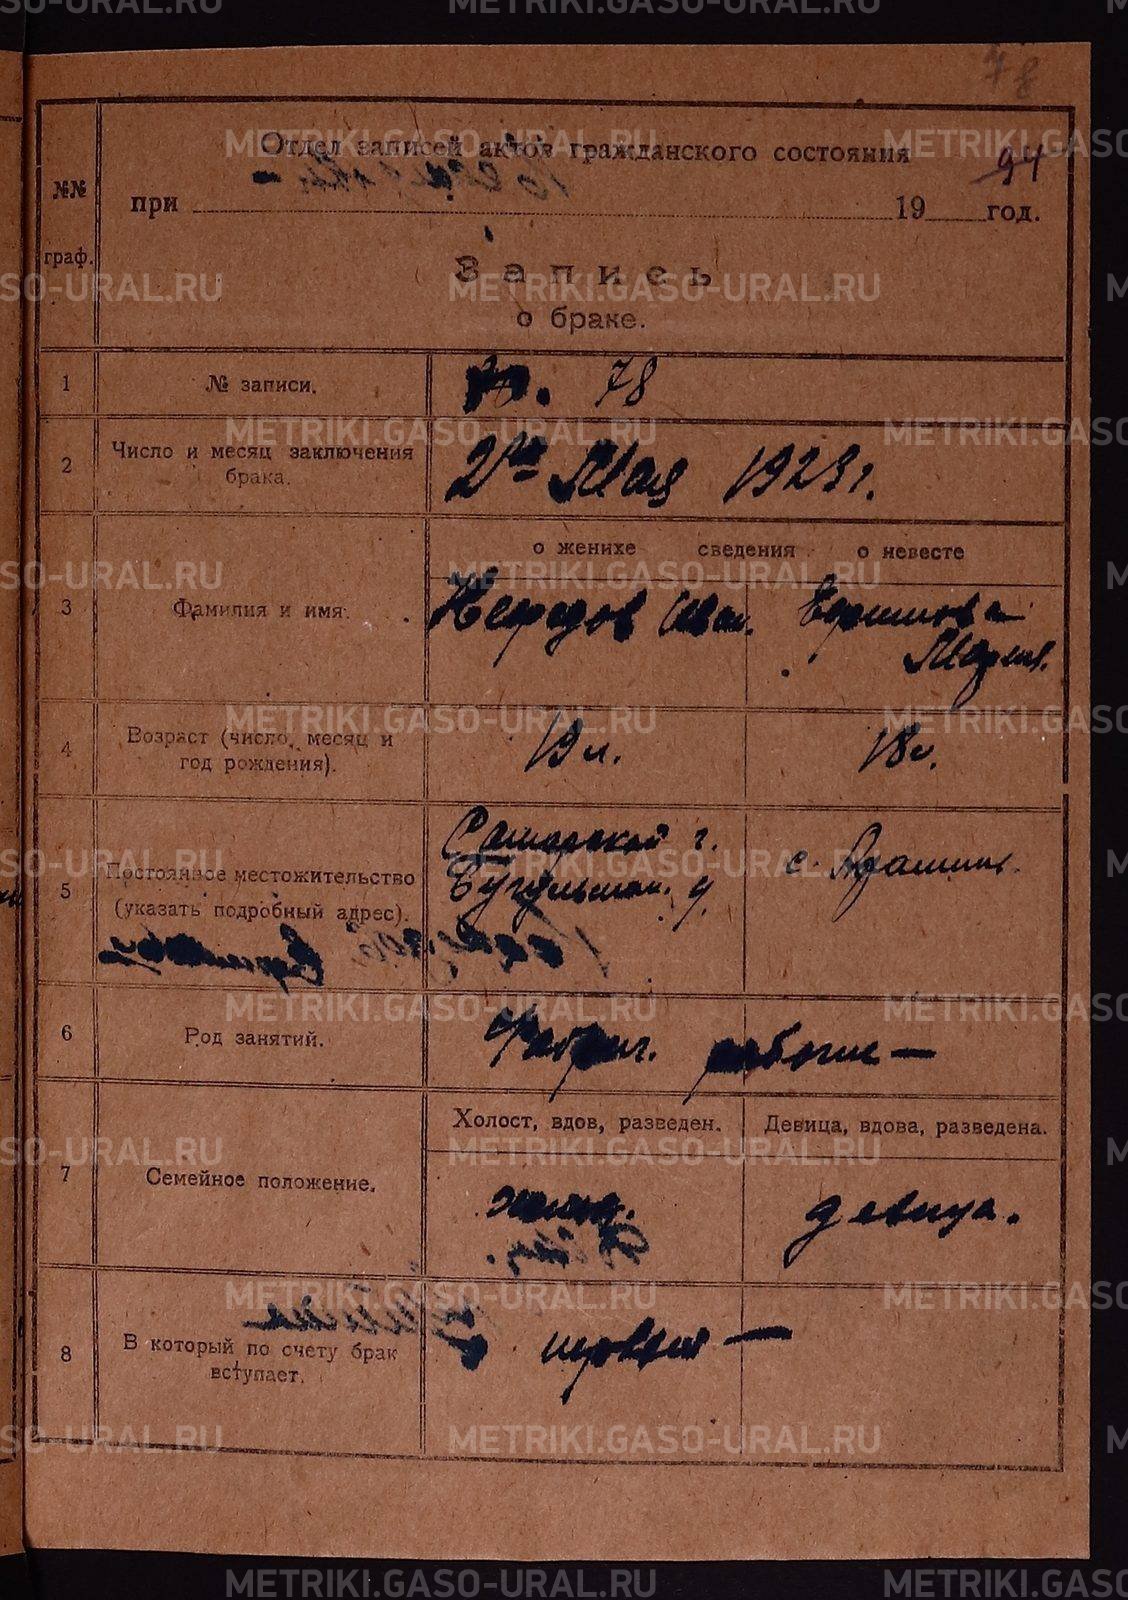 78
94
Отдел записей актов гражданского состояния
при 19 год.
№№
граф.
Запись
о браке.
1
№ записи.
78
2
Число и месяц заключения
брака.
2го Мая 1923 г.
о женихе сведения о невесте
3
Фамилия и имя.
Нефедов Иван.
Мария.
4
Возраст (число, месяц и
год рождения).
19 л.
18 л.
5
Постоянное местожительство
(указать подробный адрес).
Самарской г.
Бугульман. у.
с. Арамиль.
6
Род занятий.
Фабрич. рабочие —
7
Семейное положение.
Холост, вдов, разведен.
Девица, вдова, разведена.
холост.
девица.
8
В который по счету брак
вступает.
в первый —
METRIKI.GASO-URAL.RU